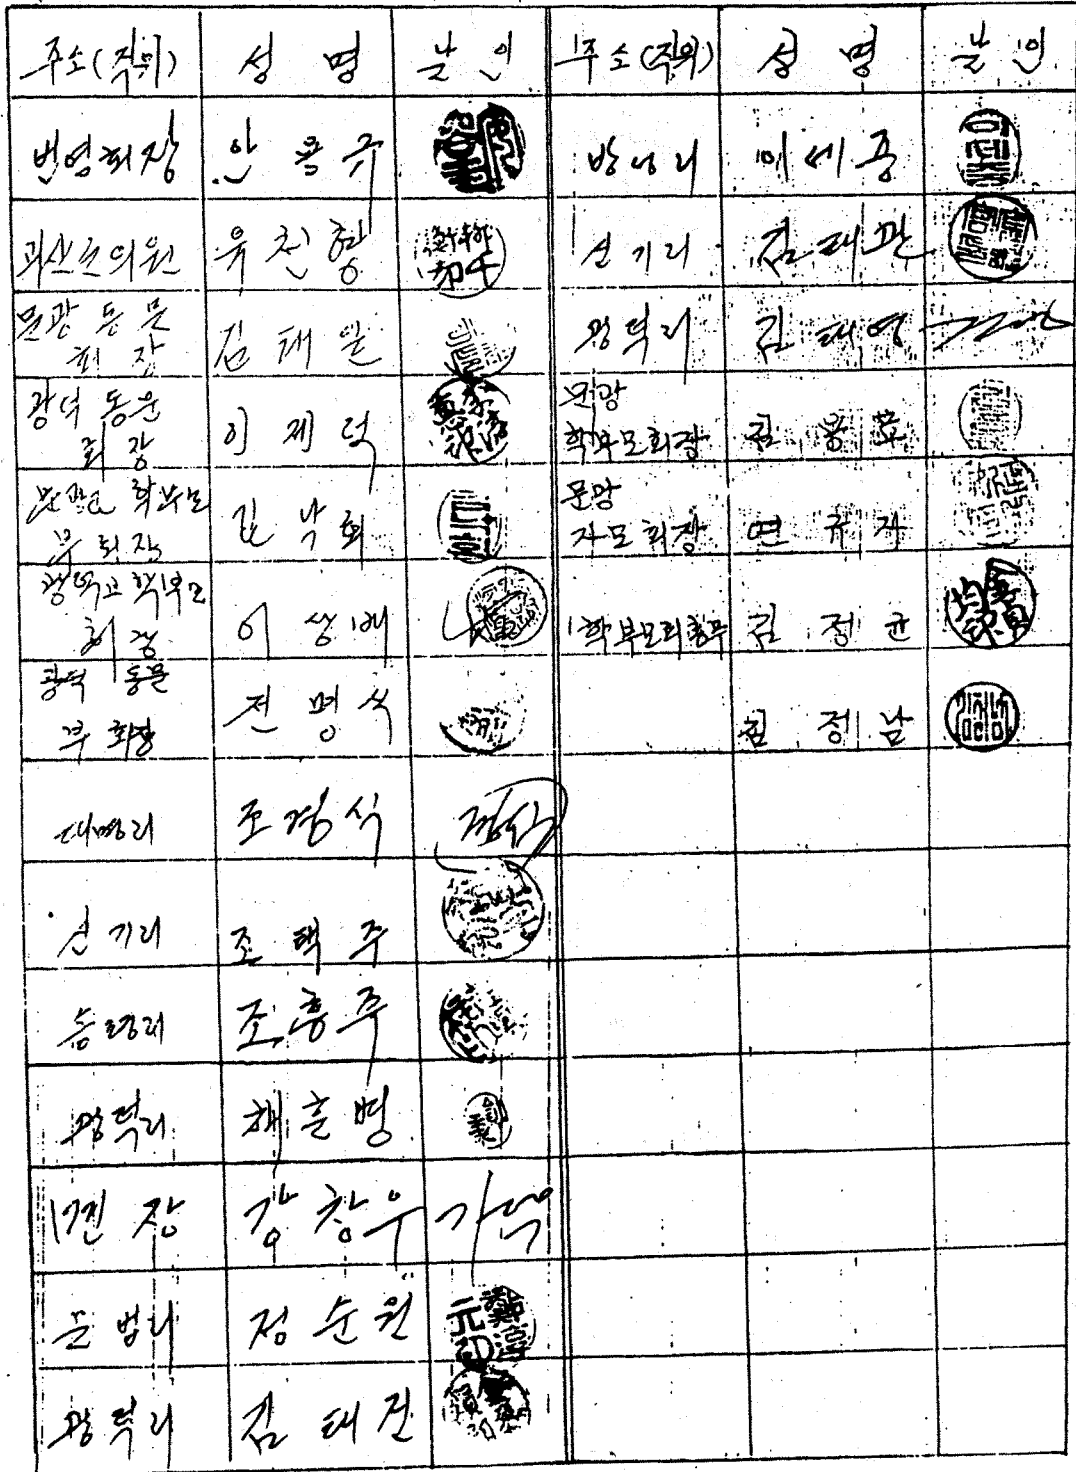 주소(직위) 성 명 날 인 주소(직위) 성 명 날 인
번영회장 안 용 규 방성리 이 세 종
괴산군의원 유 천 형 신 기 리 김 태 관
문관 동문 회 장 김 태 일 광 덕 리 김 태 영
광덕 동문 회 장 이 제 덕 문광 학부모회장 김 봉
문광교 학부모 부 회장 김 낙 회 문광 자모회장 연 규 자
광덕교 학부모 회 장 이 상 배 학부모회총무 김 정 균
광덕 동문 부 회장 전 명 식 김 정 남
대명리 조 경 식
신 기 리 조 택 주
송평리 조 흥 주
광덕리 채 훈 병
면 장 강 창 우
문 법 리 정 순 원 鄭淳元印
광 덕 리 김 태 진